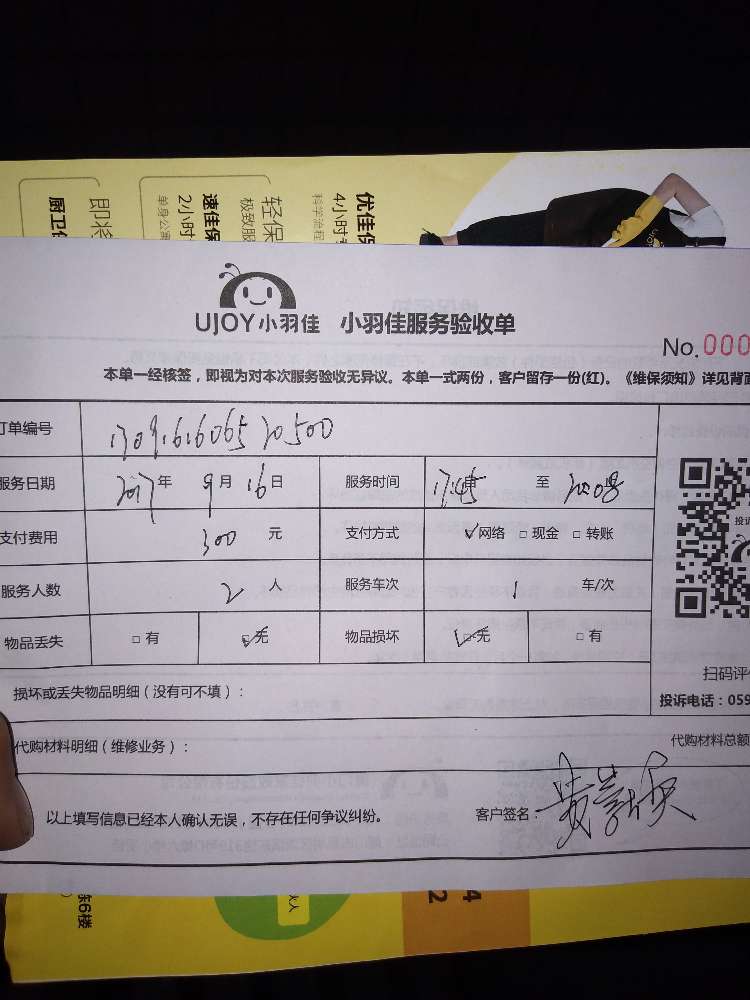 优佳保
4小时
科学流程
轻保
极致服
速佳保
2小时
单身公寓
即将
厨卫
UJOY小羽佳 小羽佳服务验收单
No.000
本单一经核签，即视为对本次服务验收无异议。本单一式两份，客户留存一份(红)。《维保须知》详见背面
订单编号 1709161606520500
服务日期 2017年 9月 16日 服务时间 17:45 至 20:08
支付费用 300 元 支付方式 ☑网络 □现金 □转账
服务人数 2 人 服务车次 1 车/次
物品丢失 □有 ☑无 物品损坏 ☑无 □有
扫码评
损坏或丢失物品明细（没有可不填）：
投诉电话：059
代购材料明细（维修业务）：
代购材料总额
以上填写信息已经本人确认无误，不存在任何争议纠纷。
客户签名：
东6楼
人
4
2